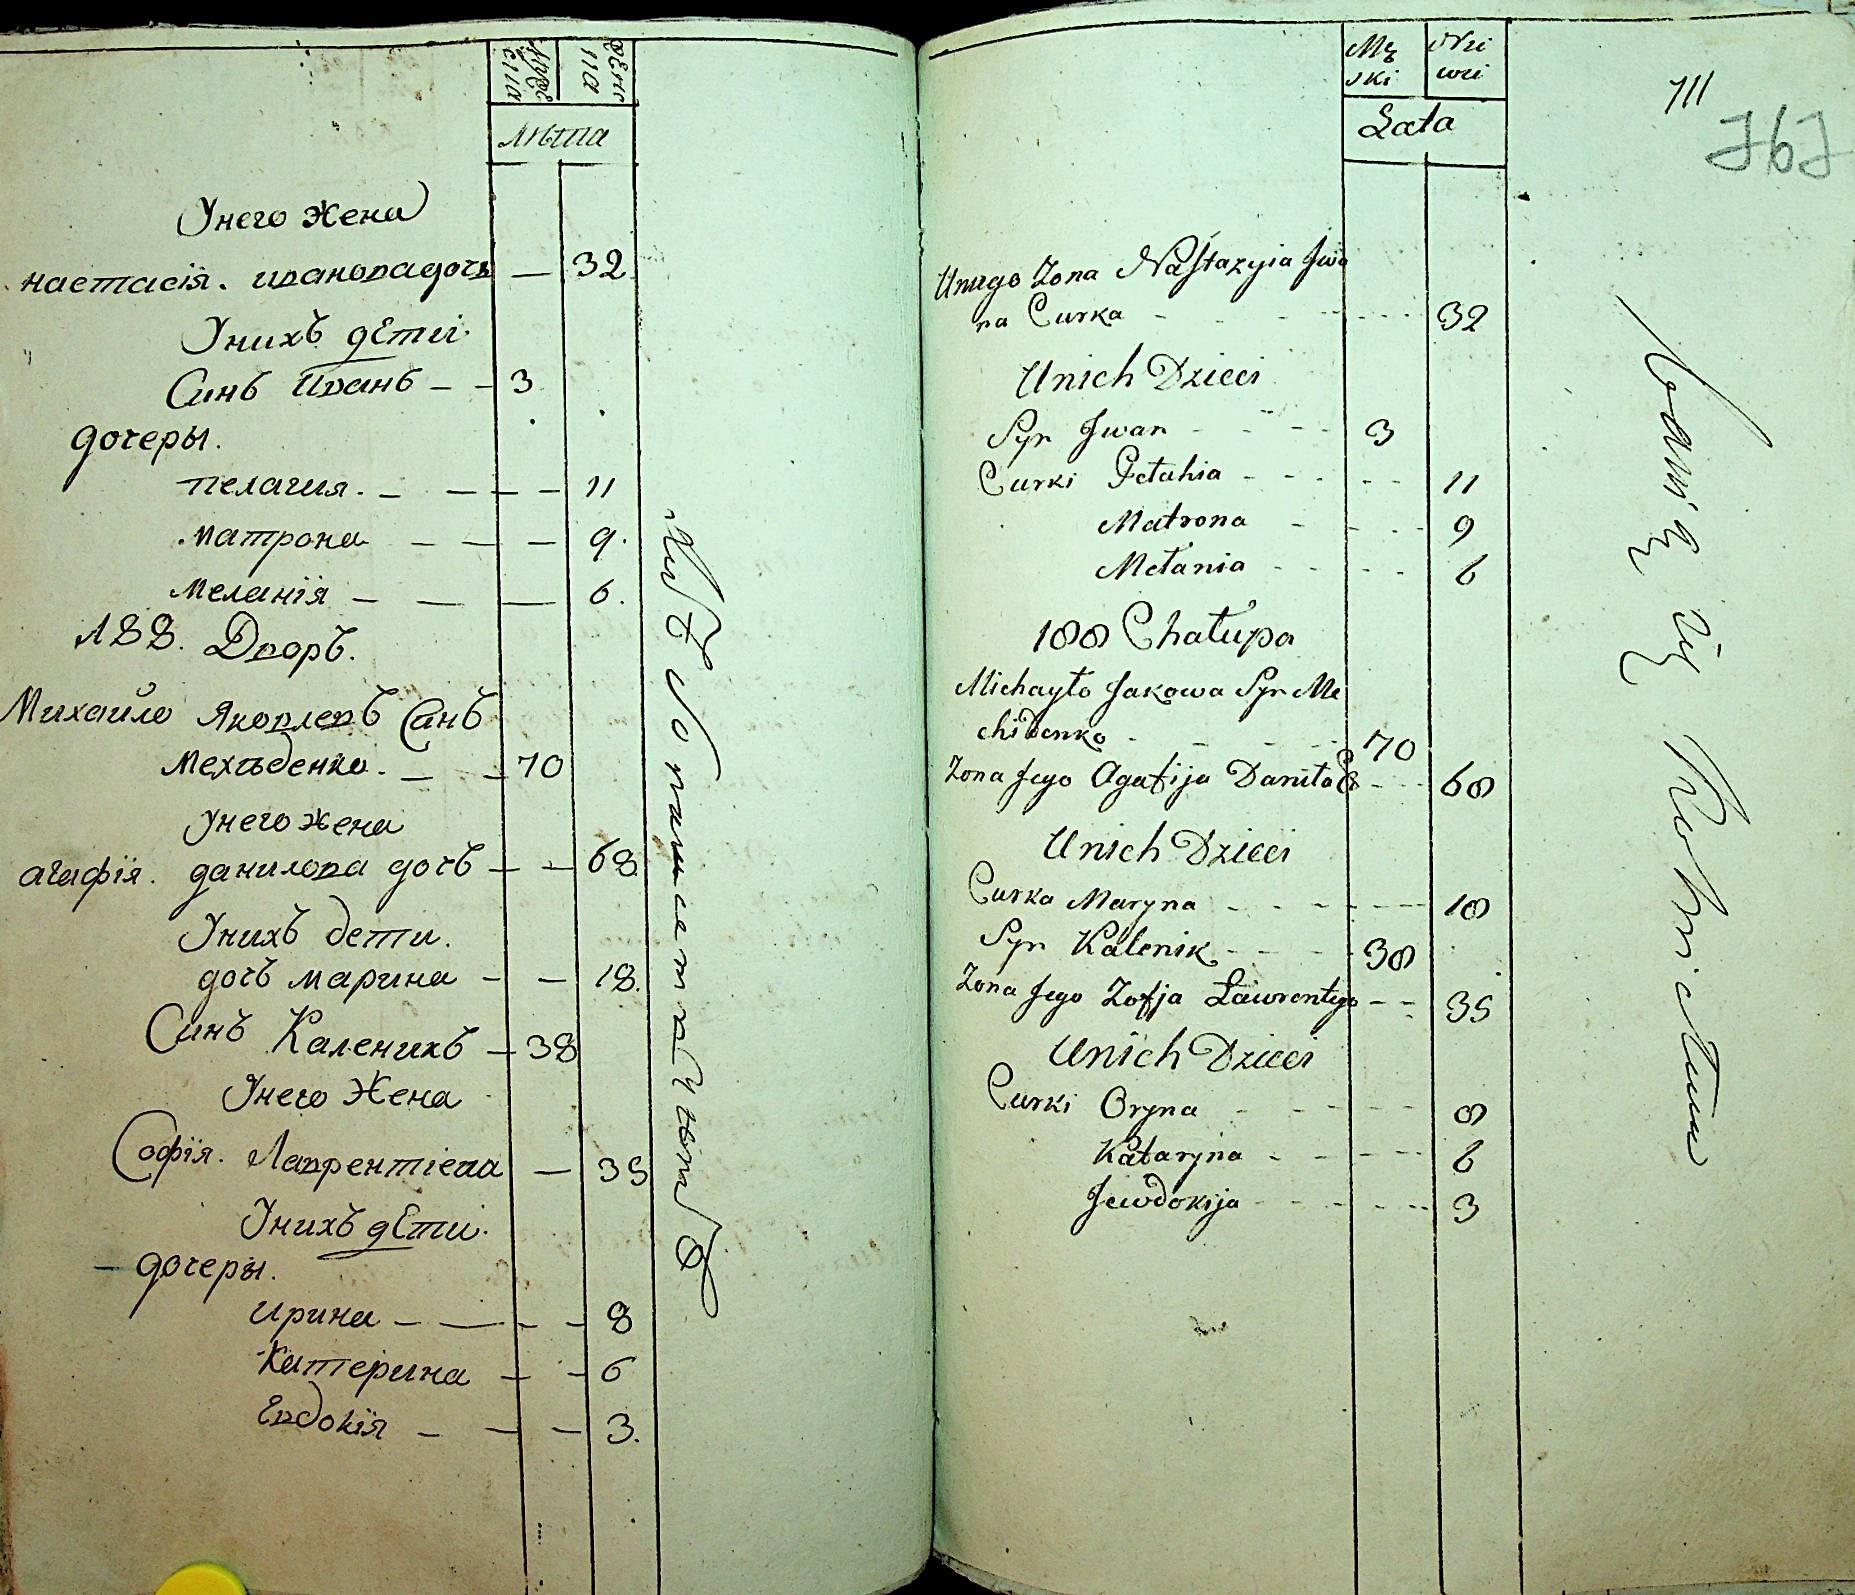 Лѣта
Унего жена
настасія. ивановадочъ — 32
Унихъ дЕти.
Синъ иванъ — — 3
дочеры.
пелагия. — — — — 11
матрона — — — 9.
меланія — — — 6.
188. Дворъ.
Михайло Яковлевъ Синъ
Мехѣденко. — — 70
унего жена
агафія. данилова дочъ — — 68
Унихъ дети.
дочъ марина — — 18.
Синъ Каленикъ — 38
Унего Жена
Софія. Лаврентіева — 35
Унихъ дЕти.
дочеры.
ирина — — — — 8
Катерина — — 6
Евдокія — — — 3.
Mę
ski
Łata
711
767
Unugo Zona Nastazyia Jwa
na Curka 32
Unich Dzieci
Syn Jwan 3
Curki Pełahia 11
Matrona 9
Mełania 6
188 Chałupa
Michayło Jakowa Syn Me
chidenko 70
Zona Jego Agafija Daniła C 68
Unich Dzieci
Curka Maryna 18
Syn Kalenik 38
Zona Jego Zofja Ławrentego 35
Unich Dzieci
Curki Oryna 8
Kataryna 6
Jewdokija 3